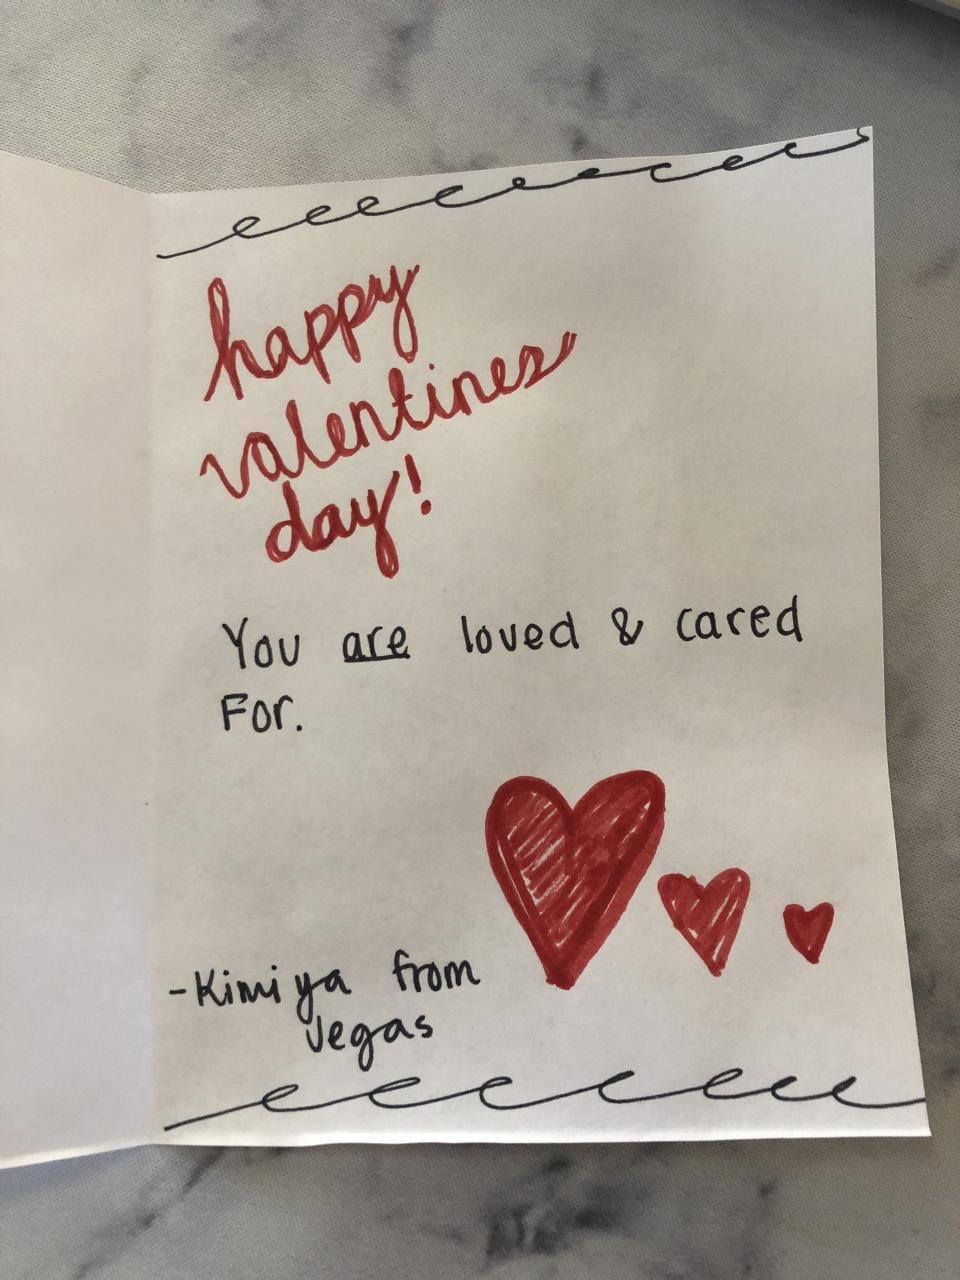 happy
valentines
day!
You are loved & cared
For.
-Kimiya from
Vegas